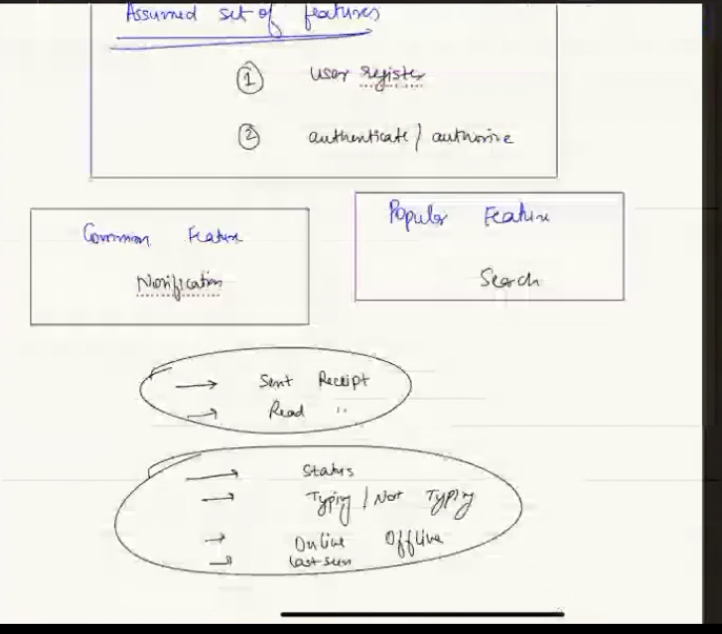 Assumed set of features
① user register
② authenticate / authorize
Common Feature
Notification
Popular Feature
Search
→ Sent Receipt
→ Read "
→ Status
→ Typing / Not Typing
→ Online Offline
→ last seen